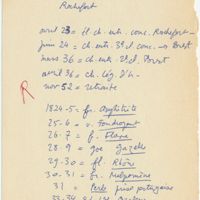 Rochefort
avril 23 = él. ch. entr. conc. Rochefort -
juin 24 = ch. entr. 3e cl. conc. → Brest
mars 36 = ch. entr. 2e cl. Brest
avril 36 = ch. Lég. D'h.
nov 52 = retraite
R
1824-5 = fr. Amphitrite
25-6 = v. Foudroyant
26-7 = f. Flore
28-9 = goe Gazelle
29-30 = fl. Rhône
30-31 = fr. Melpomène
31 = Perle prise portugaise
33-34